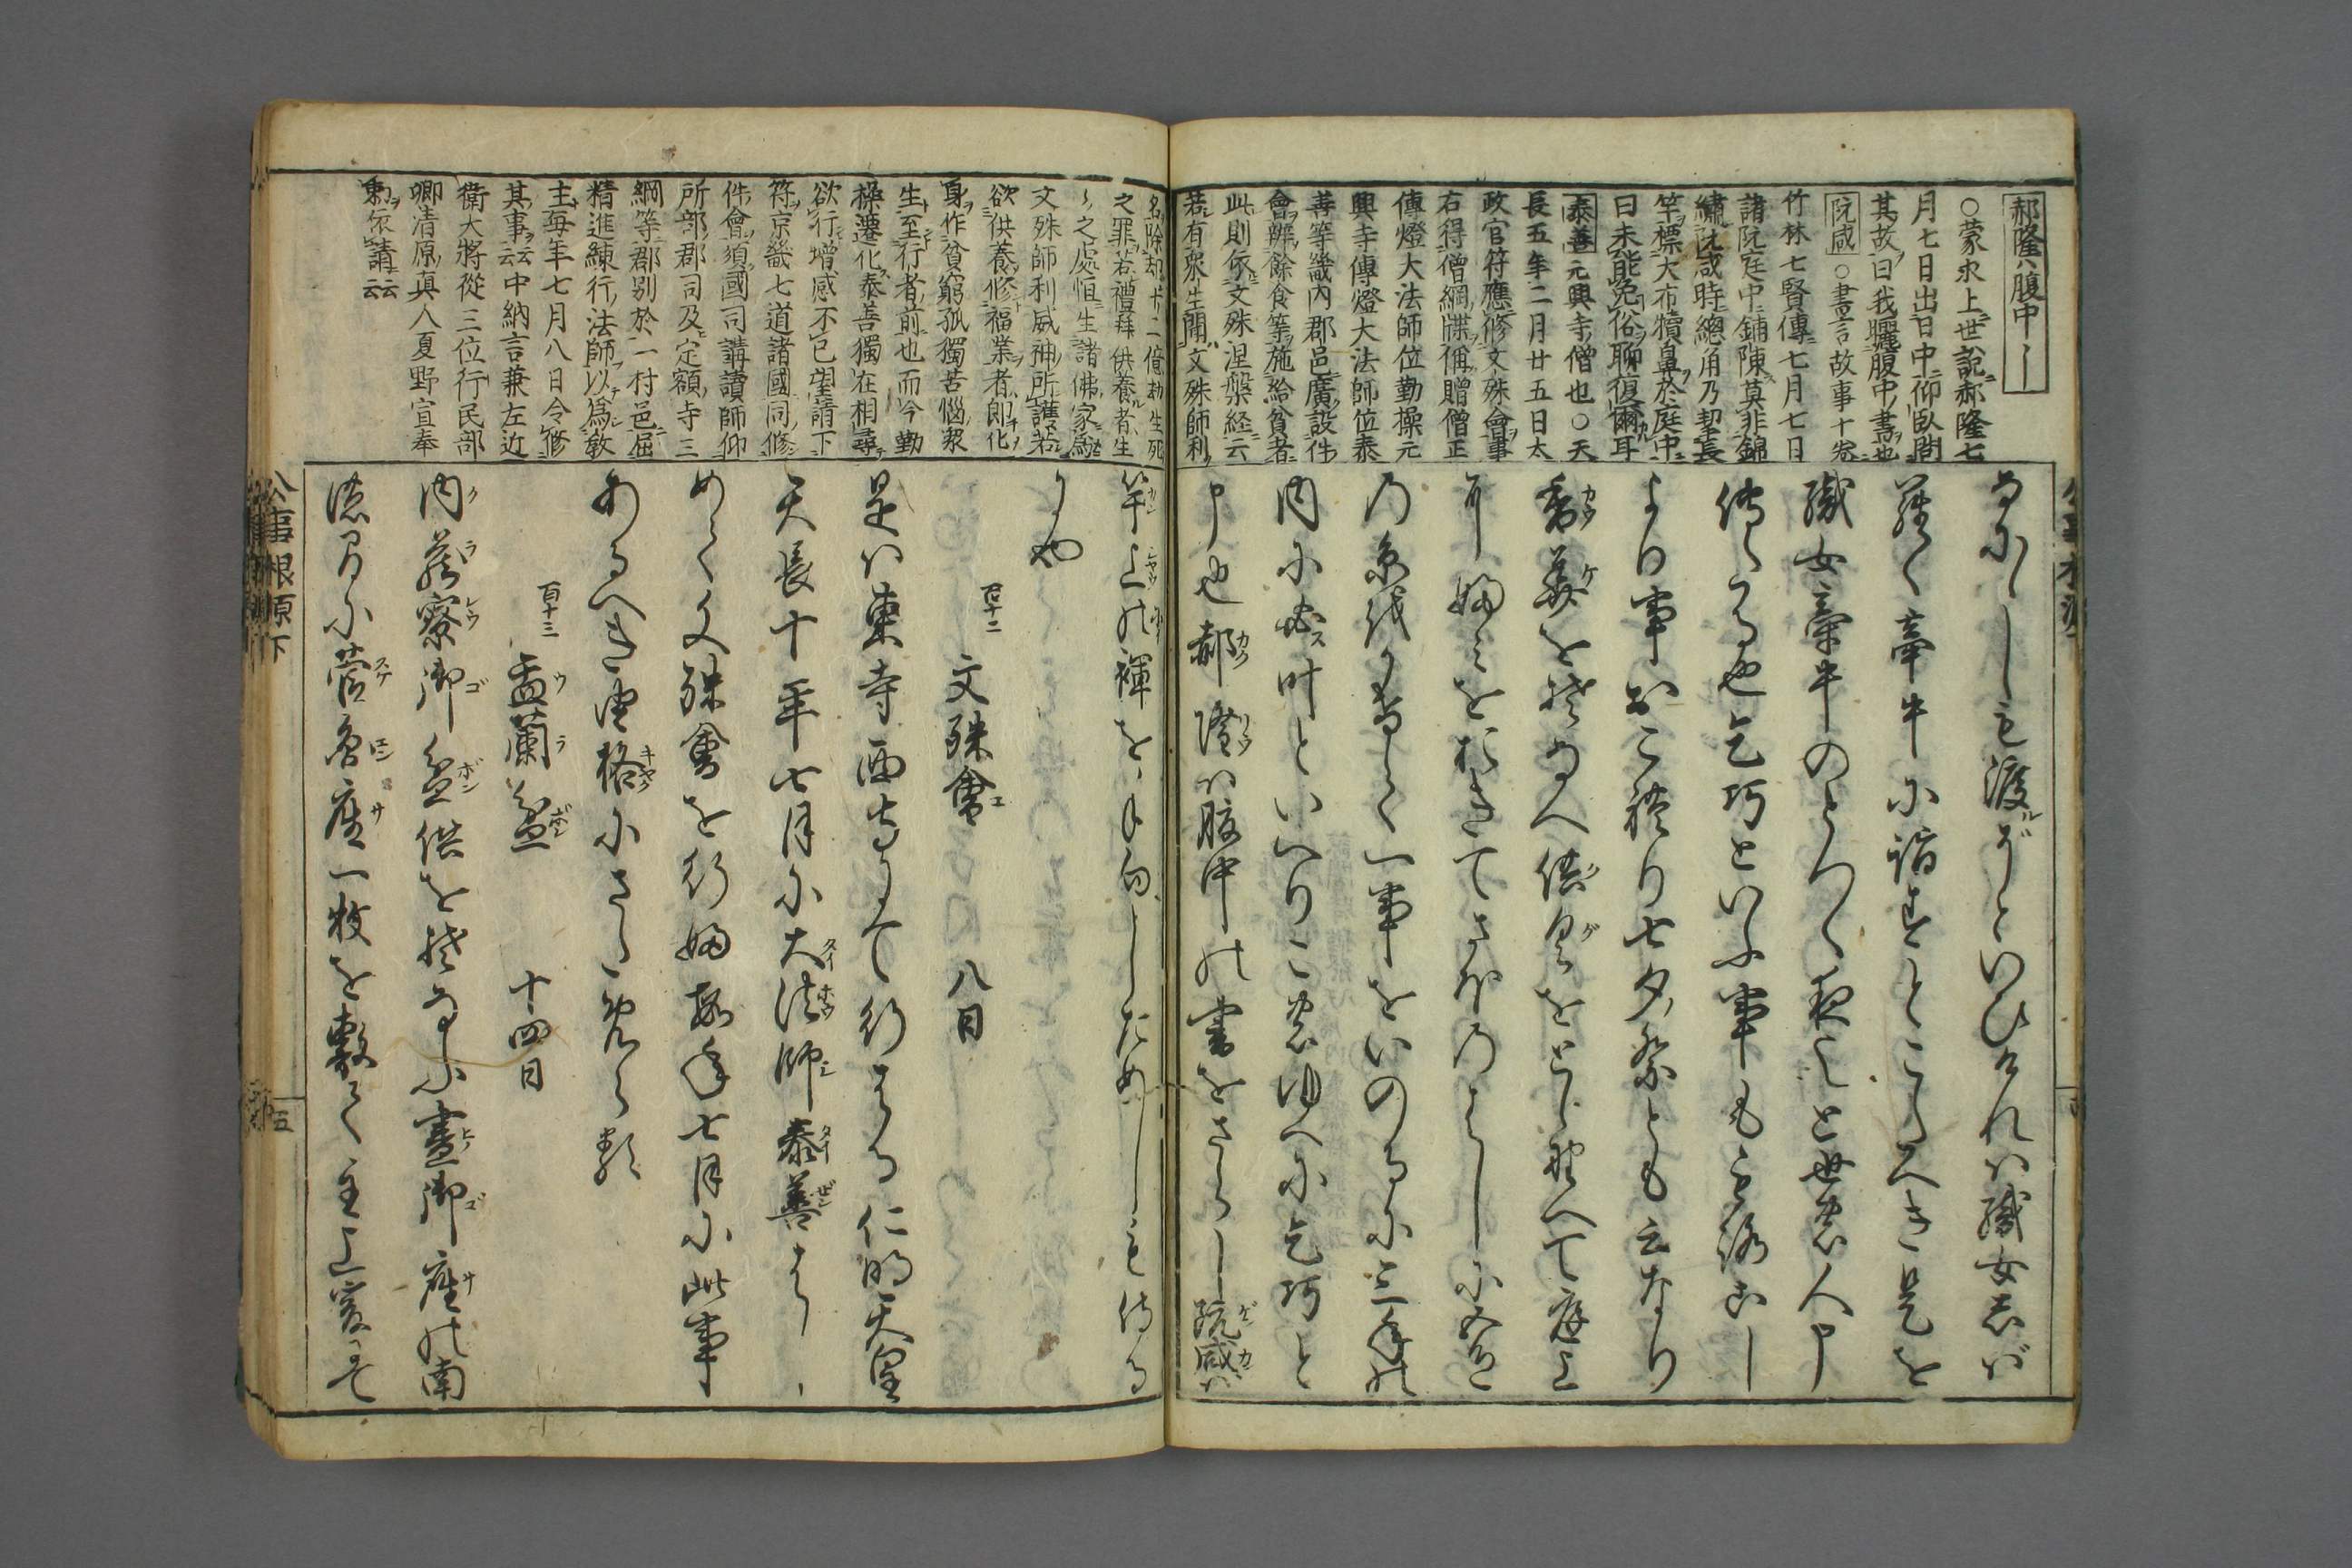 郝隆ハ腹中〱
○蒙求上世説郝隆七
月七日出日中仰臥問
其故曰我曬腹中書也
阮咸○書言故事十巻
竹林七賢傳七月七日
諸阮庭中鋪陳莫非錦
繡阮咸時總角乃挈長
竿標大布犢鼻於庭中
曰未能免俗聊復爾耳
泰善元興寺僧也○天
長五年二月廿五日太
政官符應修文殊會事
右得僧綱牒偁贈僧正
傳燈大法師位勤操元
興寺傳燈大法師位泰
善等畿内郡邑廣設件
會辨餘食等施給貧者
此則依文殊涅槃経云
若有衆生聞文殊師利
なにゝしに渡ルぞといひければ織女しば
らく牽牛に詣すとこたへき是を
織女牽牛のとつく夜也と世の人申
傳たる也乞巧といふ事もも
より事おこ礼り七夕祭とも云なり
香華をそなへ供具をとゝのへて庭上
に
の糸をかけて一事をいのるに三年の
内に必叶といへりこのゆへに乞巧と
申也郝隆ハ腹中の書をさらし阮咸ハ
名除却十二億劫生死
之罪若禮拜供養者生
〻之處恒生諸佛家為
文殊師利威神所護若
欲供養修福業者即化
身作貧窮孤獨苦惱衆
生至行者前也而今勤
操遷化泰善獨在相尋
欲行増感不已望請下
符京畿七道諸國同修
件會須國司講讀師仰
所部郡司及定額寺三
綱等郡別於一村邑屈
精進練行法師以為教
主毎年七月八日令修
其事云云中納言兼左近
衛大将從三位行民部
卿清原真人夏野宣奉
勅依請云云
竿上の褌を手向しためしも侍る
にや
百十二　文殊會　八日
是ハ東寺西寺にて行はるゝ仁明天皇
天長十年七月に大法師泰善はし
めて文殊會を行ふ毎年七月に此事
あるへき由格にさためらる
百十三　盂蘭盆　十四日
内蔵寮御盆供をそなふ晝御座の南
の間に菅圓座一枚を敷て主上
公事根原下
五